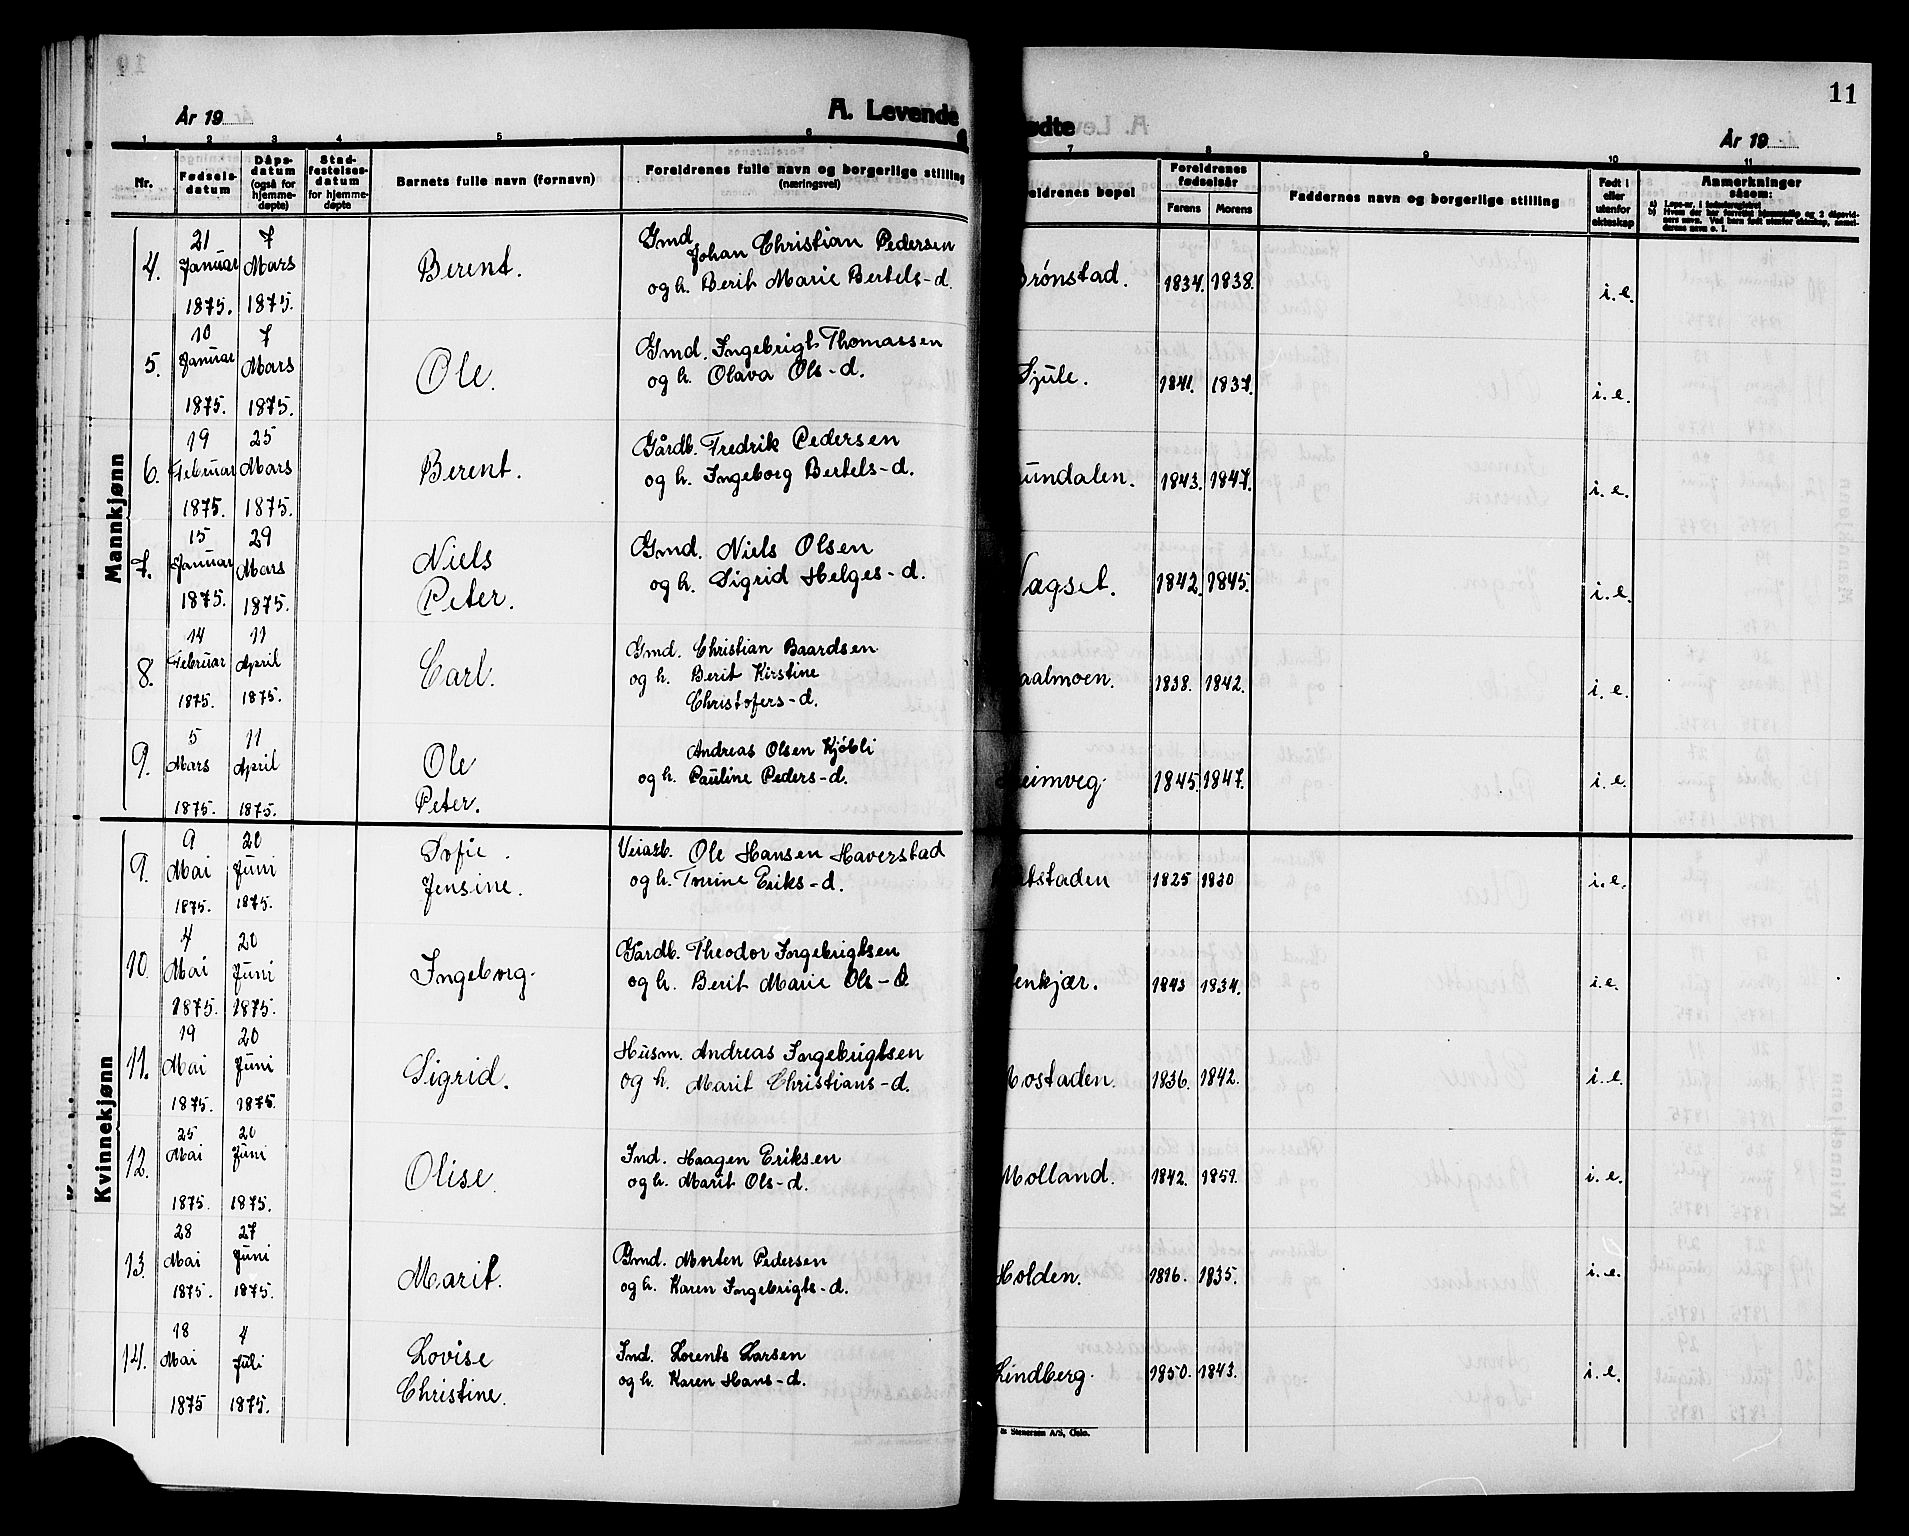 11
År 19
A. Levende
ødte
År 19
1 2 3 4 5 6 7 8 9 10 11
Nr.
Fødsels-
datum
Dåps-
datum
(også for
hjemme-
døpte)
Stad-
festelses-
datum
for hjemme-
døpte
Barnets fulle navn (fornavn)
Foreldrenes fulle navn og borgerlige stilling
(næringsvei)
reldrenes bopel
Foreldrenes
fødselsår
Farens Morens
Faddernes navn og borgerlige stilling
Født i
eller
utenfor
ekteskap
Anmerkninger
såsom:
Mannkjønn
4. 21 Januar 1875. 7 Mars 1875. Berent. Gmd. Johan Christian Pedersen
og h. Berit Marie Bertels-d. rønstad. 1834. 1838. i.e.
5. 10 Januar 1875. 7 Mars 1875. Ole. Gmd. Ingebrigt Thomassen
og h. Olava Ols-d. Sjule. 1841. 1837. i.e.
6. 19 Februar 1875. 25 Mars 1875. Berent. Gårdb. Fredrik Pedersen
og h. Ingeborg Bertels-d. undalen. 1843. 1847. i.e.
7. 15 Januar 1875. 29 Mars 1875. Niels
Peter. Gmd. Niels Olsen
og h. Sigrid Helges-d. agset. 1842. 1845. i.e.
8. 14 Februar 1875. 11 April 1875. Carl. Gmd. Christian Baardsen
og h. Berit Kirstine
Christofers-d. aalmoen. 1838. 1842. i.e.
9. 5 Mars 1875. 11 April 1875. Ole
Peter. Andreas Olsen Kjøbli
og h. Pauline Peders-d. eimveg 1845. 1847. i.e.
Kvinnekjønn
9. 9 Mai 1875. 20 Juni 1875. Sofie.
Jensine. Veiarb. Ole Hansen Haverstad
og h. Trine Eriks-d. tstaden 1825 1830 i.e.
10. 4 Mai 1875. 20 Juni 1875. Ingeborg. Gårdb. Theodor Ingebrigtsen
og h. Berit Marie Ols-d enkjær. 1843 1834. i.e.
11. 19 Mai 1875. 20 Juni 1875. Sigrid. Husm. Andreas Ingebrigtsen
og h. Marit Christians-d. Mostaden. 1836. 1842. i.e.
12. 25 Mai 1875. 20 Juni 1875. Olise. Ind. Haagen Eriksen
og h. Marit Ols-d. Molland. 1842. 1859. i.e.
13. 28 Mai 1875. 27 Juni 1875. Marit. Gmd. Morten Pedersen
og h. Karen Ingebrigts-d. Holden. 1835. i.e.
14. 18 Mai 1875 4 Juli 1875. Lovise
Christine. Ind. Lorents Larsen
og h. Karen Hans-d. Lindberg. 1850. 1843. i.e.
& Stenersen A/S, Oslo.